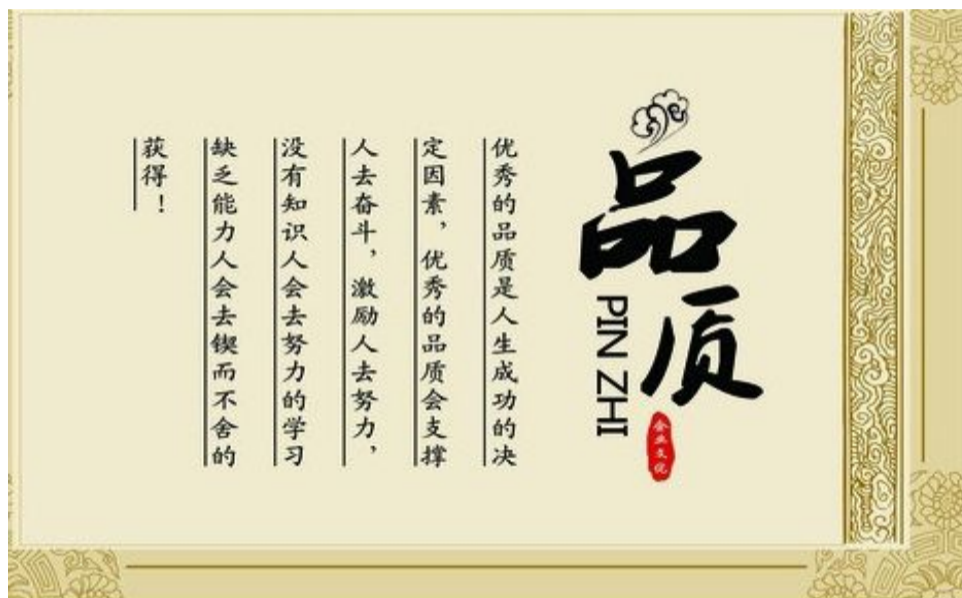 品质
PIN ZHI
企业文化
优秀的品质是人生成功的决
定因素，优秀的品质会支撑
人去奋斗，激励人去努力，
没有知识人会去努力的学习
缺乏能力人会去锲而不舍的
获得！